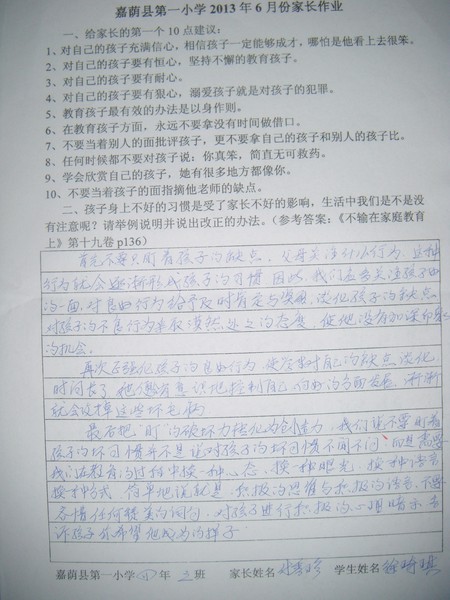 嘉荫县第一小学 2013 年 6 月份家长作业
一、给家长的第一个 10 点建议：
1、对自己的孩子充满信心，相信孩子一定能够成才，哪怕是他看上去很笨。
2、对自己的孩子要有恒心，坚持不懈的教育孩子。
3、对自己的孩子要有耐心。
4、对自己的孩子要有狠心，溺爱孩子就是对孩子的犯罪。
5、教育孩子最有效的办法是以身作则。
6、在教育孩子方面，永远不要拿没有时间做借口。
7、不要当着别人的面批评孩子，更不要拿自己的孩子和别人的孩子比。
8、任何时候都不要对孩子说：你真笨，简直无可救药。
9、学会欣赏自己的孩子，她有很多地方都像你。
10、不要当着孩子的面指摘他老师的缺点。
二、孩子身上不好的习惯是受了家长不好的影响，生活中我们是不是没
有注意呢？请举例说明并说出改正的办法。（参考答案：《不输在家庭教育
上》第十九卷 p136）
首先不要只盯着孩子的缺点，父母关注什么行为，这种
行为就会逐渐形成孩子的习惯 因此 我们应多关注孩子
的一面，对良好行为给予及时肯定与 淡化孩子的缺点
对孩子的不良行为采取漠然处之的态度，使他没有加深印象
的机会。
再次 强化孩子的良好行为 使 对自己的缺点淡化
时间长了 她便会有意识地控制自己 向好的方面发展，渐渐
就会改掉这些坏毛病
最后把"盯"的破坏力转化为创造力，我们说不要盯着
孩子的坏习惯并不是说对孩子的坏习惯不闻不问 而是需要
我们在教育的过程中换一种心态，换一种眼光，换一种语言
换一种方式，简单地说就是，积极的思维与积极的语言，不要
吝惜任何赞美的词句，对孩子进行积极的心理暗示 告
诉孩子你希望他成为的样子
嘉荫县第一小学 四 年 三 班 家长姓名 学生姓名